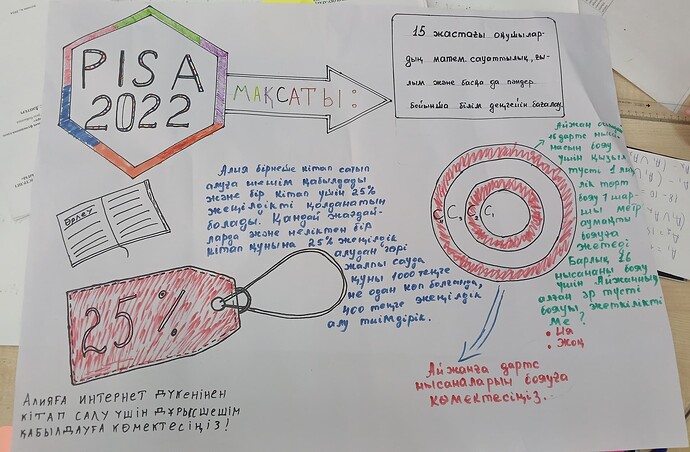 PISA
2022
МАҚСАТЫ:
15 жастағы оқушылар-
дың матем. сауаттылық, ғы-
лым және басқа да пәндер
бойынша білім деңгейін бағалау.
Алия бірнеше кітап сатып
алуға шешім қабылдады
және бір кітап үшін 25%
жеңілдікті қолданатын
болады. Қандай жағдай-
ларда және неліктен бір
кітап құнына 25% жеңілдік
алудан гөрі
жалпы сауда
құны 1000 теңге
не одан көп болғанда,
400 теңге жеңілдік
алу тиімдірік.
25%
АЛИЯҒА ИНТЕРНЕТ ДҮКЕНІНЕН
КІТАП САЛУ ҮШІН ДҰРЫСШЕШІМ
ҚАБЫЛДАУҒА КӨМЕКТЕСІҢІЗ!
C C₃ C₂ C₁
Айжан
26 дартс ныса-
насын бояу
үшін қызыл
түсті 1
лік торт
бояу 1 шар-
шы метр
аумақты
бояуға
жетеді
Барлық 26
нысананы бояу
үшін Айжанның
алған әр түсті
бояуы жеткілікті
ме?
• Ия
• Жоқ
Айжанға дартс
нысаналарын бояуға
көмектесіңіз.